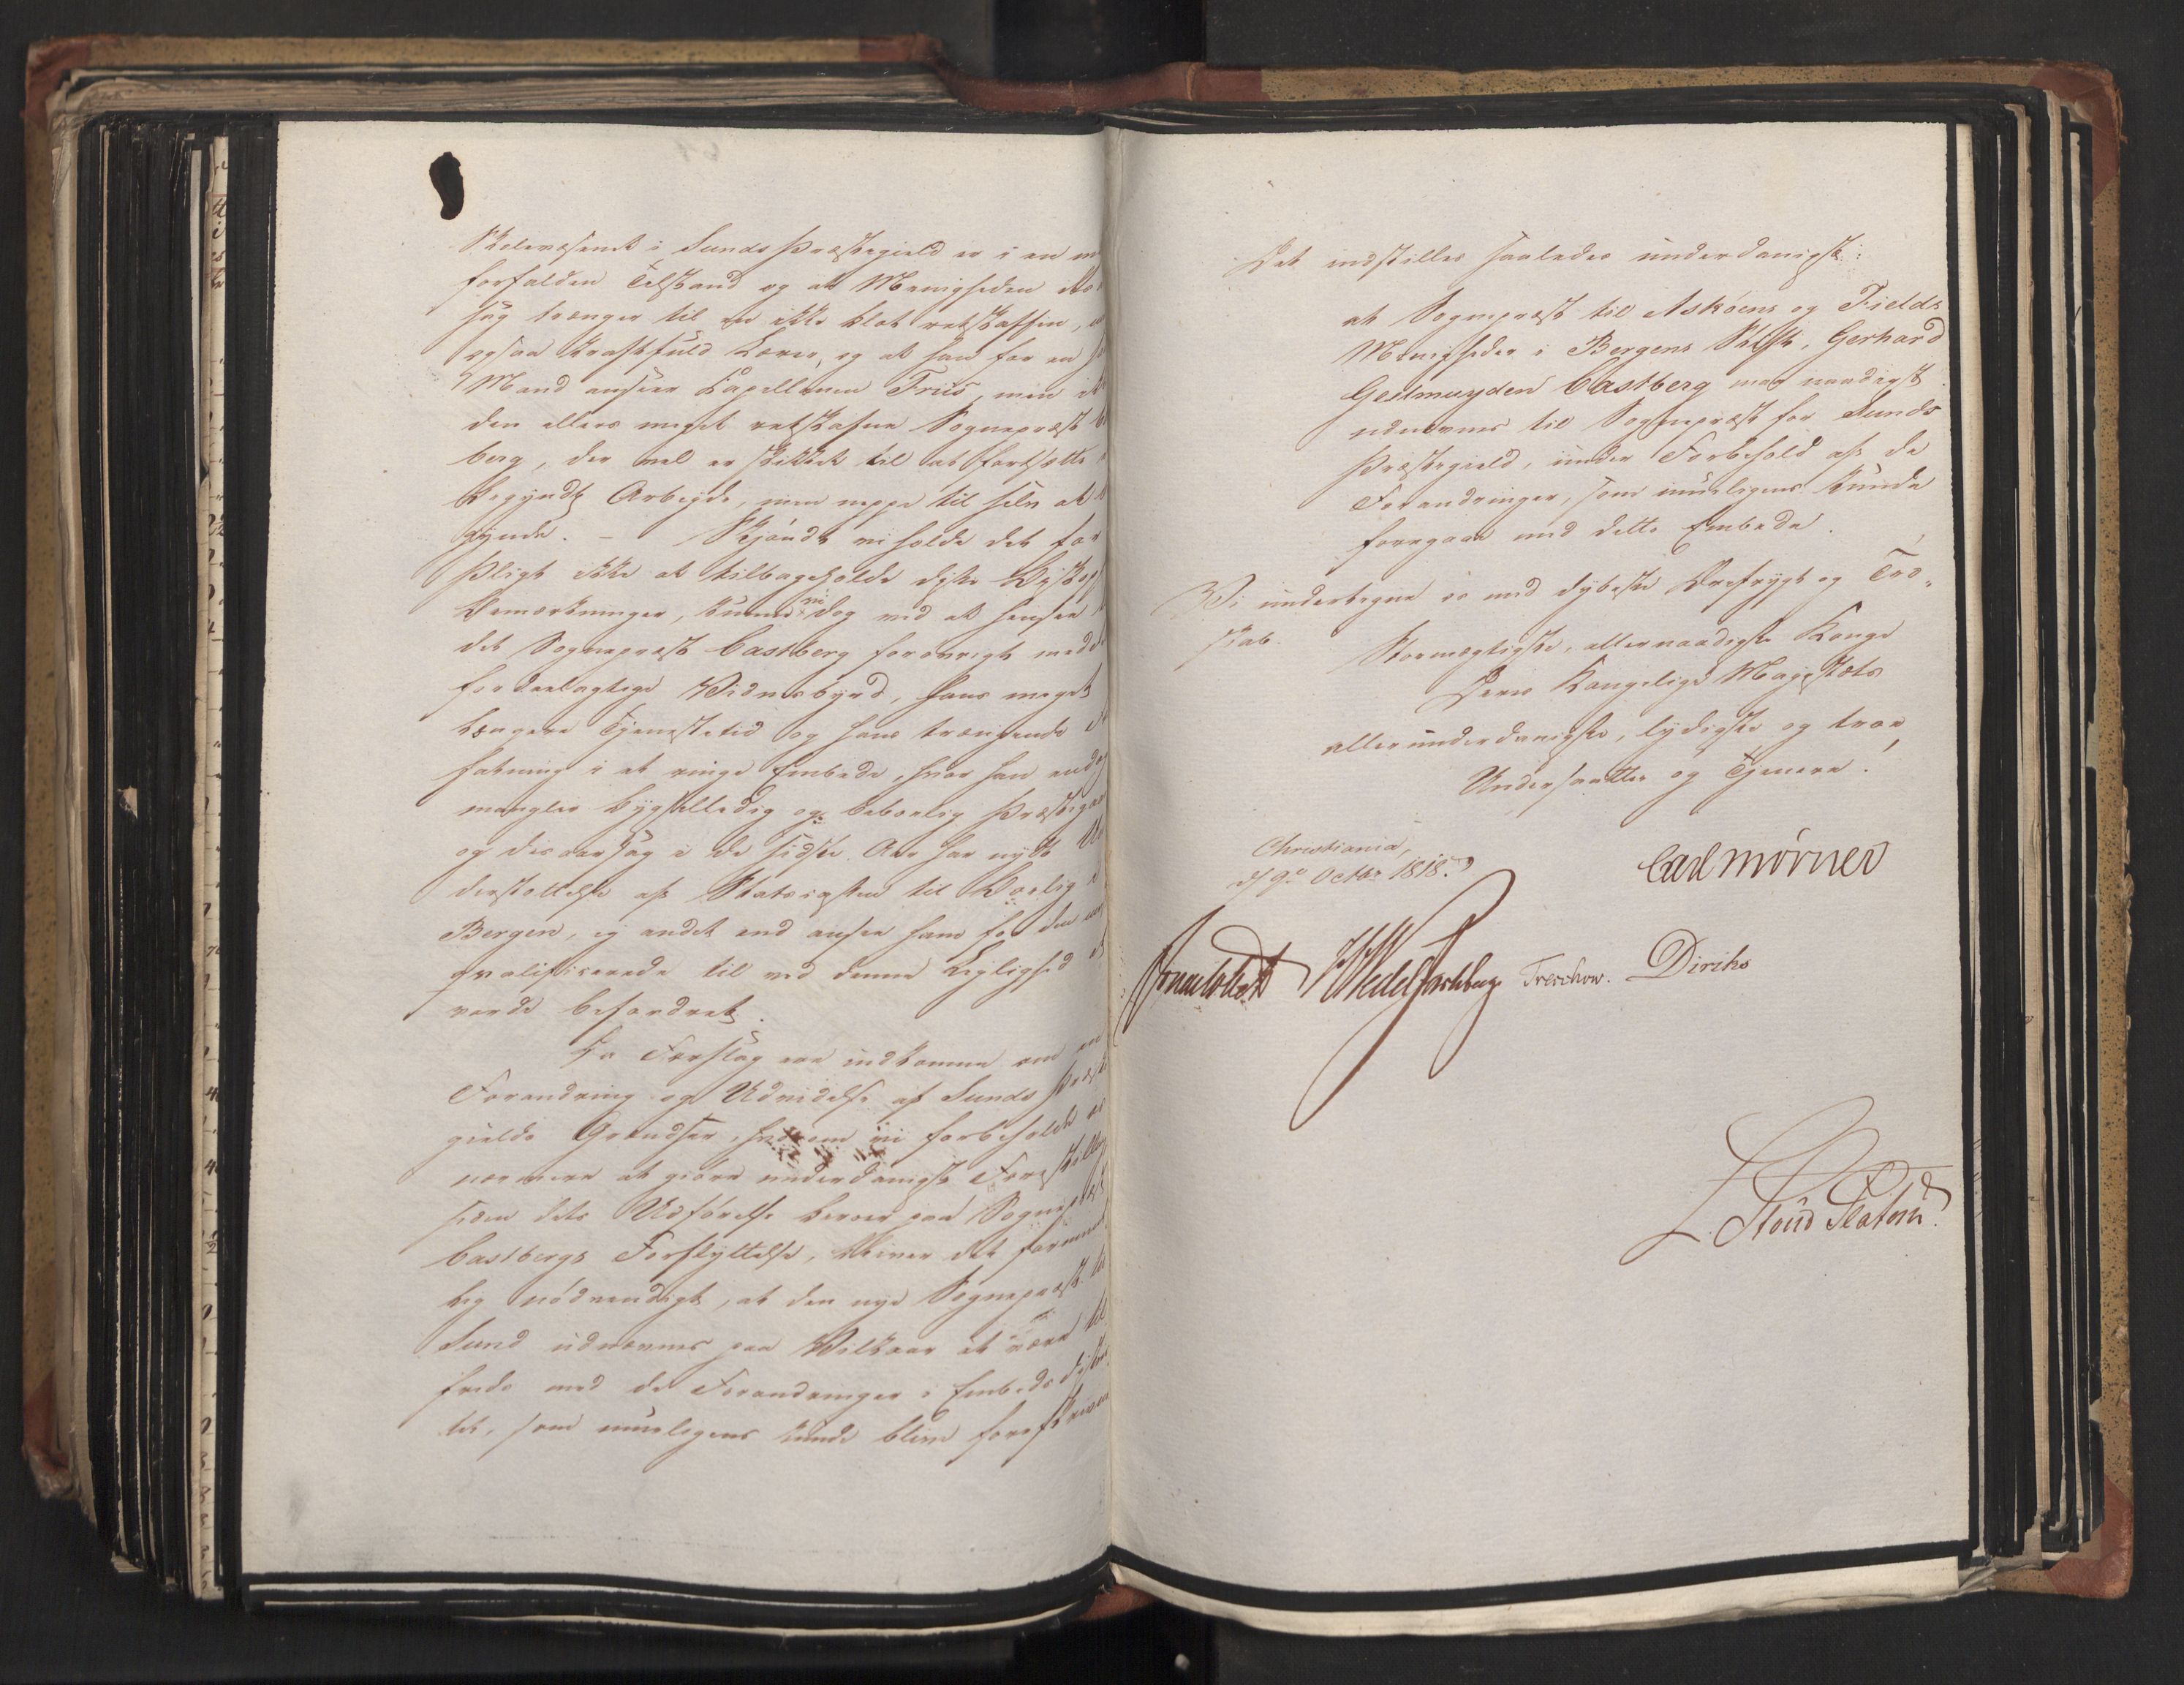 Skolevæsenet i Sunds Præstegield er i en
forfalden Tilstand og at Menigheden
sag trænger til en ikke blot retskaffen,
ogsaa kraftfuld Lærer, og at han for en
Mand anseer Capellanen Friis, men
den ellers meget retskafne Sognepræst
berg, der vel er skikket til at fortsætte
begyndt Arbeyde, men neppe til selv at
gynde. – Skjøndt vi holde det for
Pligt ikke at tilbageholde disse Biskop
Bemærkninger, kunne vi dog ved at hensee
det Sognepræst Castberg forøvrigt med
fordeelagtige Vidnesbyrd, hans meget
længere Tjenestetid og hans trængende
fatning i et ringe Embede, hvor han endog
mangler bygfældig og beboelig Præstegaar
og desaarsag i de sidste Aar har nydt
derstøttelse af Statscassen til Huusleie i
Bergen, ej andet end ansee ham for den meest
qvalificerede til ved denne Leylighed at
vorde befordret.
Da Forslag ere indkomne om en
Forandring og Udvidelse af Sunds Præste
gields Grændser, hvorom vi forbeholde os
nærmere at giøre underdanigst Forestilling
siden dets Udførelse beroer paa Sognepræst
Castbergs Forflyttelse, bliver det formeent
lig nødvendigt, at den nye Sognepræst til
Sund udnævnes paa Vilkaar at være til
freds med de Forandringer i Embeds Distric
tet, som mueligens kunde blive foreskrevne
Det indstilles saaledes underdanigst:
at Sognepræst til Askøens og Fields
Menigheder i Bergens Stift, Gerhard
Geelmuyden Castberg maa naadigst
udnævnes til Sognepræst for Sunds
Præstegield, under Forbehold af de
Forandringer, som mueligens kunde
foregaae med dette Embede.
Vi undertegne os med dybeste Ærefrygt og Tro„
skab.
Stormægtigste, allernaadigste Konge
Deres Kongelige Majestæts
allerunderdanigste, lydigste og troe
Undersaatter og Tjenere.
Christiania,
d 9de Octbr 1818.
Carl Mörner
Sommerhielm HWedel Jarlsberg Treschow. Diriks
L. Stoud Platou